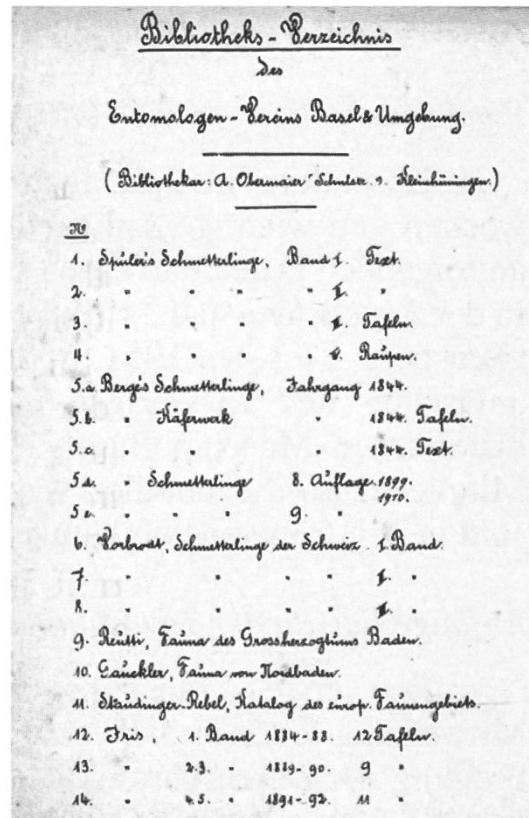 Bibliotheks-Verzeichnis
des
Entomologen-Vereins Basel & Umgebung.
(Bibliothekar: A. Obermaier Schulstr. 9. Kleinhüningen.)
No
1. Spuler's Schmetterlinge, Band I. Text.
2. " " "
3. " " " Tafeln.
4. " " " Raupen.
5.a Berge's Schmetterlinge, Jahrgang 1844.
5.b. " Käferwerk " 1844. Tafeln.
5.c. " " 1844. Text.
5d. " Schmetterlinge 8. Auflage. 1899
5e. " " 9. " 1910.
6. Vorbrodt, Schmetterlinge der Schweiz. I. Band.
7 " " " " "
8. " " " " "
9. Reutti, Fauna des Grossherzogtums Baden.
10. Gauckler, Fauna von Nordbaden.
11. Staudinger-Rebel, Katalog des europ. Faunengebiets.
12. Iris, 1. Band 1884-88. 12 Tafeln.
13. " 2.3. " 1889-90. 9 "
14. " 4.5. " 1891-92. 11 "